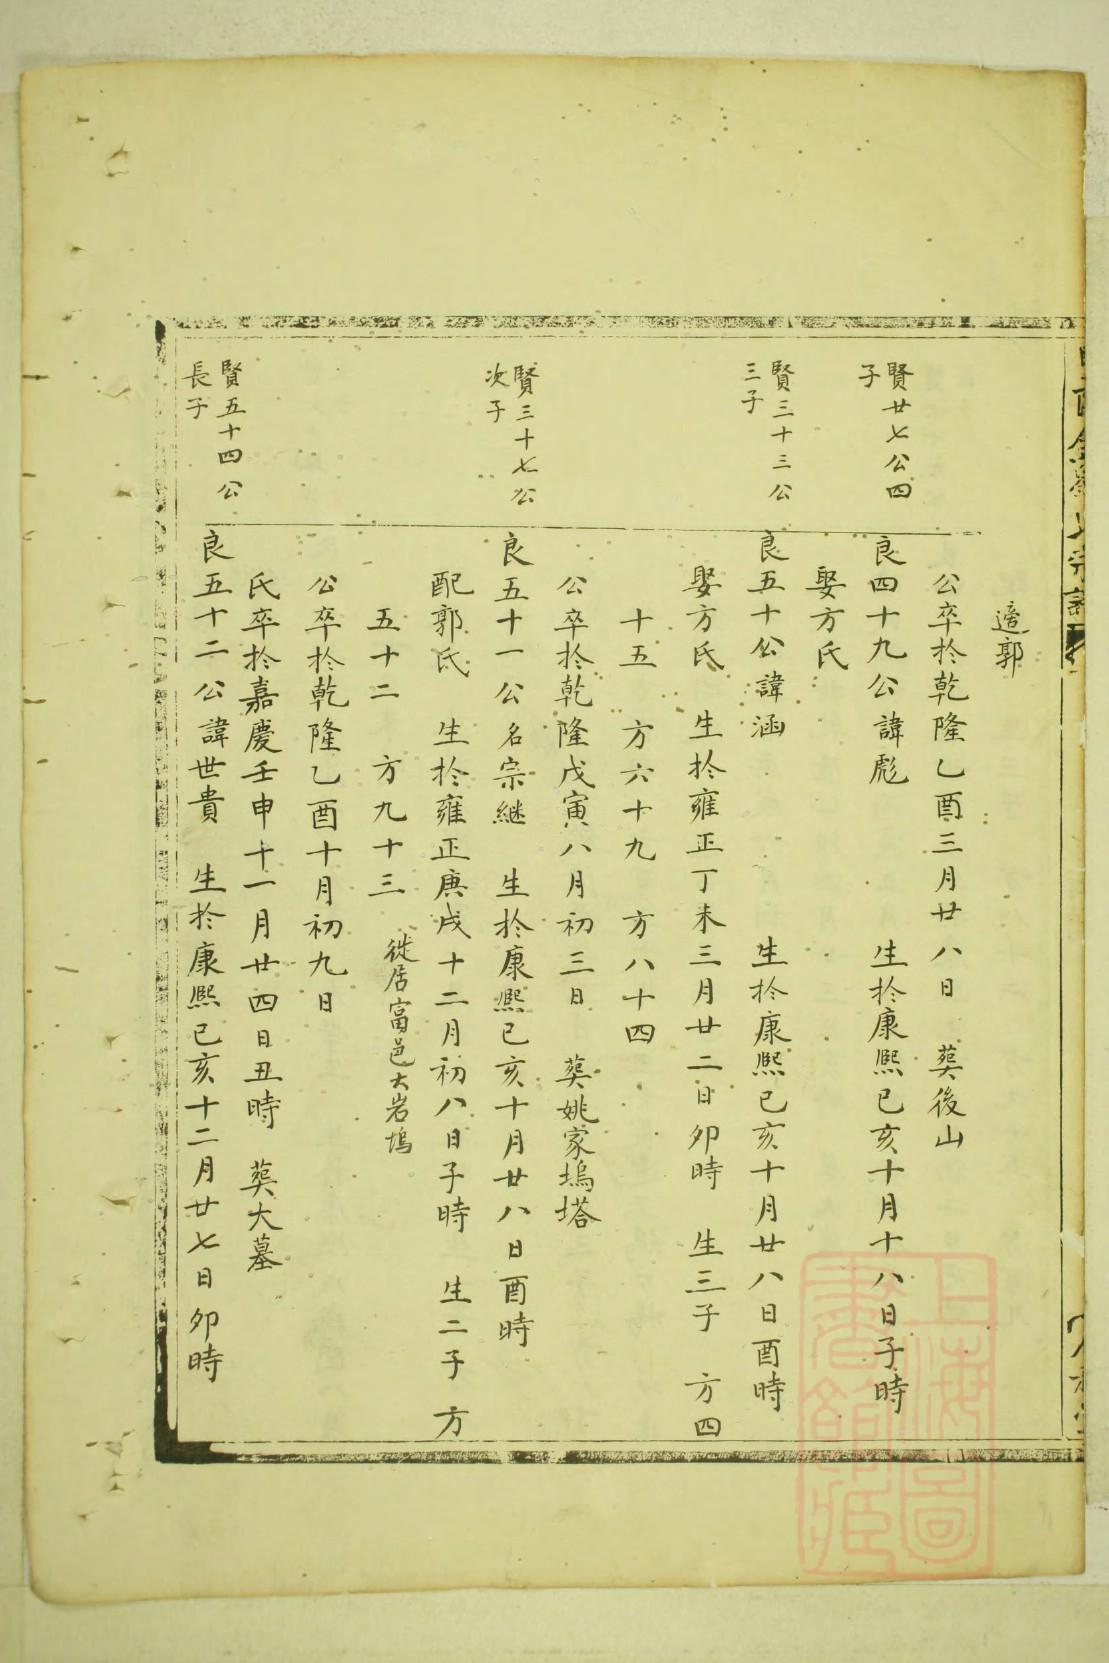 適郭
公卒扵乾隆乙酉三月廿八日　葬後山
賢廿七公四
子
良四十九公諱彪　生扵康熙已亥十月十八日子時
娶方氏
賢三十三公
三子
良五十公諱涵　生扵康熙已亥十月廿八日酉時
娶方氏　生扵雍正丁未三月廿二日卯時　生三子　方四
十五　方六十九　方八十四
公卒扵乾隆戊寅八月初三日　葬姚家塢塔
賢三十七公
次子
良五十一公名宗継　生扵康熙已亥十月廿八日酉時
配郭氏　生扵雍正庚戌十二月初八日子時　生二子　方
五十二　方九十三　徙居富邑大岩塢
公卒扵乾隆乙酉十月初九日
氏卒扵嘉慶壬申十一月廿四日丑時　葬大墓
賢五十四公
長子
良五十二公諱世貴　生扵康熙已亥十二月廿七日卯時
上海圖
書館藏